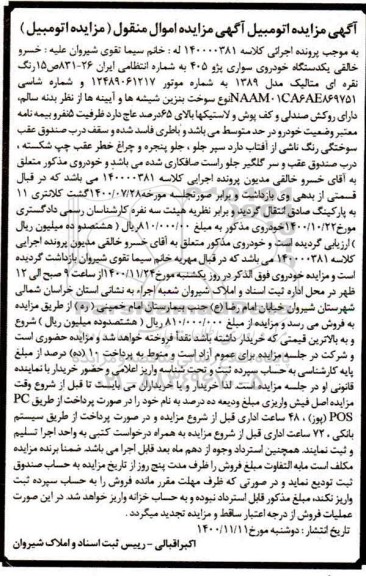 آگهی مزایده اتومبیل آگهی مزایده اموال منقول ( مزایده اتومبیل )
به موجب پرونده اجرائی کلاسه ۱۴۰۰۰۰۳۸۱ له : خانم سیما تقوی شیروان علیه : خسرو
خالقی یکدستگاه خودروی سواری پژو ۴۰۵ به شماره انتظامی ایران ۲۶-۸۳۱ص۱۵رنگ
نقره ای متالیک مدل ۱۳۸۹ به شماره موتور ۱۲۴۸۹۰۶۱۲۱۷ و شماره شاسی
NAAM۰۱CA۶AE۸۶۹۷۵۱نوع سوخت بنزین شیشه ها و آیینه ها از نظر بدنه سالم،
دارای روکش صندلی و کف پوش و لاستیکها بالای ۶۵درصد عاج دارد ظرفیت ۵نفر و بیمه نامه
معتبر وضعیت خودرو در حد متوسط می باشد و باطری فاسد شده و سقف درب صندوق عقب
سوختگی رنگ ناشی از آفتاب دارد سپر جلو ، جلو پنجره و چراغ خطر عقب چپ شکسته ،
درب صندوق عقب و سر گلگیر جلو راست صافکاری شده می باشد و خودروی مذکور متعلق
به آقای خسرو خالقی مدیون پرونده اجرایی کلاسه ۱۴۰۰۰۰۳۸۱ می باشد که در قبال
قسمتی از بدهی وی بازداشت و برابر صورتجلسه مورخه۱۴۰۰/۰۷/۲۸گشت کلانتری ۱۱
به پارکینگ صادق انتقال گردید و برابر نظریه هیئت سه نفره کارشناسان رسمی دادگستری
مورخ۱۴۰۰/۱۰/۲۲خودروی مذکور به مبلغ ۸۱۰/۰۰۰/۰۰۰ریال ( هشتصدو ده میلیون ریال
) ارزیابی گردیده است و خودروی مذکور متعلق به آقای خسرو خالقی مدیون پرونده اجرایی
کلاسه ۱۴۰۰۰۰۳۸۱ می باشد که در قبال مهریه خانم سیما تقوی شیروان بازداشت گردیده
است و مزایده خودروی فوق الذکر در روز یکشنبه مورخ۱۴۰۰/۱۱/۲۴از ساعت ۹ صبح الی ۱۲
ظهر در محل اداره ثبت اسناد و املاک شیروان شعبه اجراء به نشانی استان خراسان شمالی
شهرستان شیروان خیابان امام رضا (ع) جنب بیمارستان امام خمینی ( ره ) از طریق مزایده
به فروش می رسد و مزایده از مبلغ ۸۱۰/۰۰۰/۰۰۰ ریال ( هشتصدوده میلیون ریال ) شروع
و به بالاترین قیمتی که خریدار داشته باشد نقداً فروخته خواهد شد و مزایده حضوری است
و شرکت در جلسه مزایده برای عموم آزاد است و منوط به پرداخت ۱۰ (ده) درصد از مبلغ
پایه کارشناسی به حساب سپرده ثبت و تحت شناسه واریز اعلامی و حضور خریدار یا نماینده
قانونی او در جلسه مزایده است. لذا خریدار و یا خریداران می بایست تا قبل از شروع وقت
مزایده اصل فیش واریزی مبلغ ودیعه ده درصد به نام خود را در صورت پرداخت از طریق PC
POS (پوز) ، ۴۸ ساعت اداری قبل از شروع مزایده و در صورت پرداخت از طریق سیستم
بانکی ، ۷۲ ساعت اداری قبل از شروع مزایده به همراه درخواست کتبی به واحد اجرا تسلیم
و ثبت نمایند. همچنین استرداد وجوه از دهم ماه بعد قابل اجرا می باشد. ضمنا برنده مزایده
مکلف است مابه التفاوت مبلغ فروش را ظرف مدت پنج روز از تاریخ مزایده به حساب صندوق
ثبت تودیع نماید و در صورتی که ظرف مهلت مقرر مانده فروش را به حساب سپرده ثبت
واریز نکند، مبلغ مذکور قابل استرداد نبوده و به حساب خزانه واریز خواهد شد. در این صورت
عملیات فروش از درجه اعتبار ساقط و مزایده تجدید میگردد .
تاریخ انتشار : دوشنبه مورخ۱۴۰۰/۱۱/۱۱
اکبر اقبالی - رییس ثبت اسناد و املاک شیروان